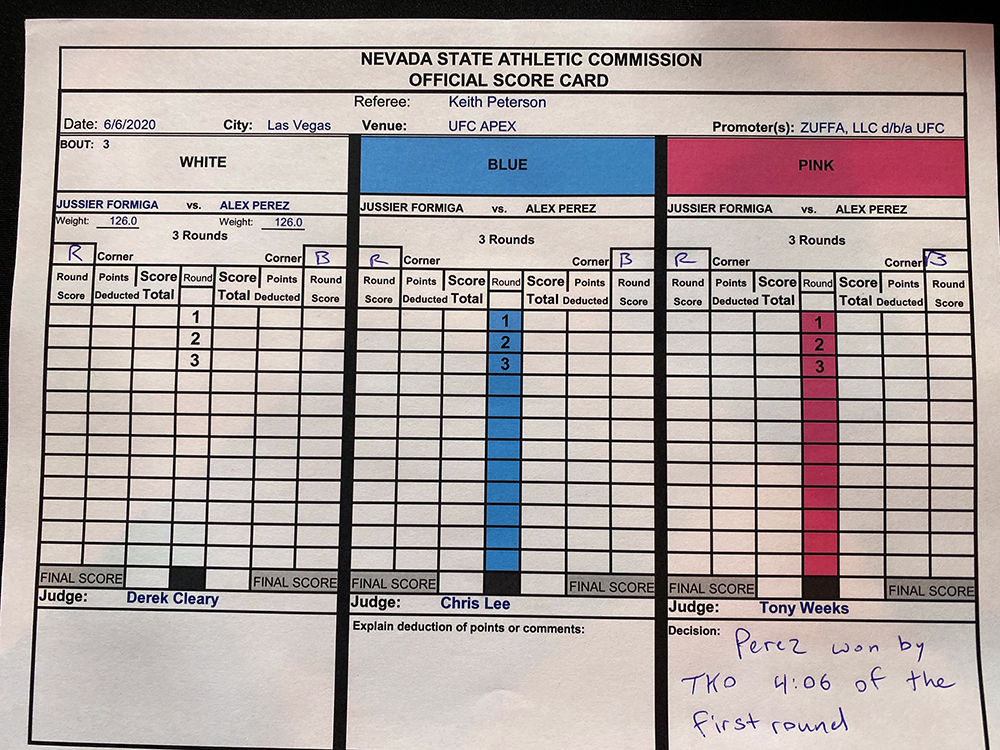 NEVADA STATE ATHLETIC COMMISSION
OFFICIAL SCORE CARD
Referee: Keith Peterson
Date: 6/6/2020 City: Las Vegas Venue: UFC APEX Promoter(s): ZUFFA, LLC d/b/a UFC
BOUT: 3
WHITE
JUSSIER FORMIGA vs. ALEX PEREZ
Weight: 126.0 Weight: 126.0
3 Rounds
R Corner Corner B
Round Points Score Round Score Points Round
Score Deducted Total Total Deducted Score
1
2
3
FINAL SCORE FINAL SCORE
Judge: Derek Cleary
BLUE
JUSSIER FORMIGA vs. ALEX PEREZ
3 Rounds
R Corner Corner B
Round Points Score Round Score Points Round
Score Deducted Total Total Deducted Score
1
2
3
FINAL SCORE FINAL SCORE
Judge: Chris Lee
Explain deduction of points or comments:
PINK
JUSSIER FORMIGA vs. ALEX PEREZ
3 Rounds
R Corner Corner B
Round Points Score Round Score Points Round
Score Deducted Total Total Deducted Score
1
2
3
FINAL SCORE FINAL SCORE
Judge: Tony Weeks
Decision: Perez won by
TKO 4:06 of the
first round